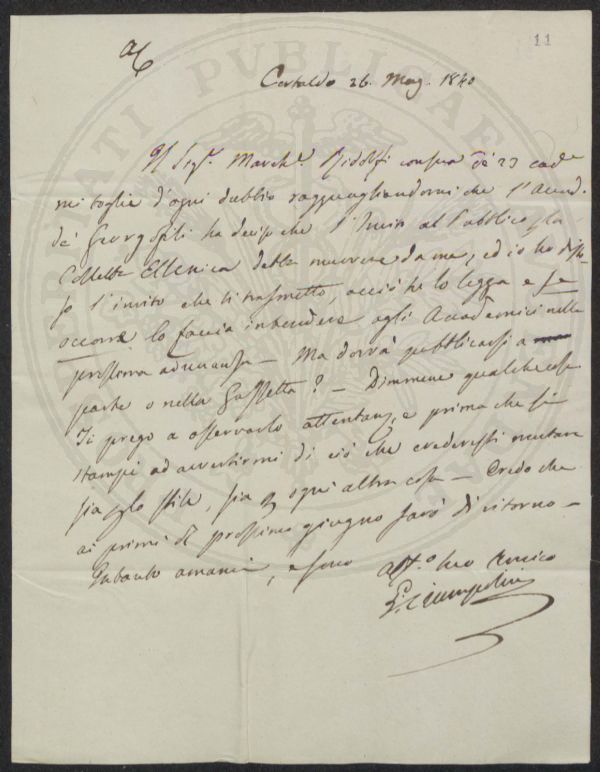 11
Certaldo 26. Mag. 1840
Il Sigr. March. Ridolfi con sua de' 23 cade
mi toglie d'ogni dubbio ragguagliandomi che l'Accad.
de' Georgofili ha deciso che l'Invito al Pubblico p la
Colletta Ellenica debba muovere da me, ed io ho
so l'invito che ti trasmetto, acciò tu lo legga e se
occorre lo faccia intendere agli Accademici nella
prossima adunanza — Ma dovrà pubblicarsi a
parte o nella Gazzetta? — Dimmene qualche cosa
Ti prego a osservarlo attentam, e prima che si
stampi ad avvertirmi di ciò che crederesti mutare
sia p lo stile, sia p ogni altra cosa — Credo che
ai primi di prossimo giugno sarò di ritorno —
Intanto amami, e sono
aff.o tuo Amico
L: Ciampolini